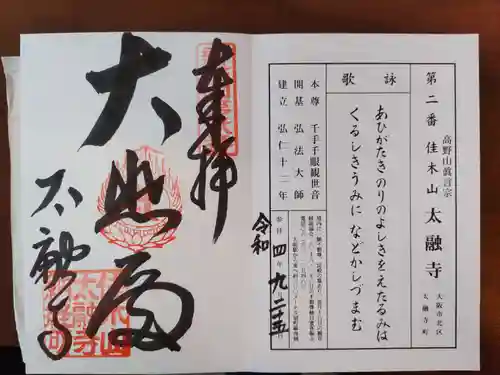 第二番 佳木山 太融寺
高野山眞言宗
大阪市北区
太融寺町
詠歌
あひがたきのりのよしきをえたるみは
くるしきうみに などかしづまむ
本尊 千手千眼観世音
開基 弘法大師
建立 弘仁十二年
参拝 令和 四年 九 二十五
奉拝
大悲殿
太融寺